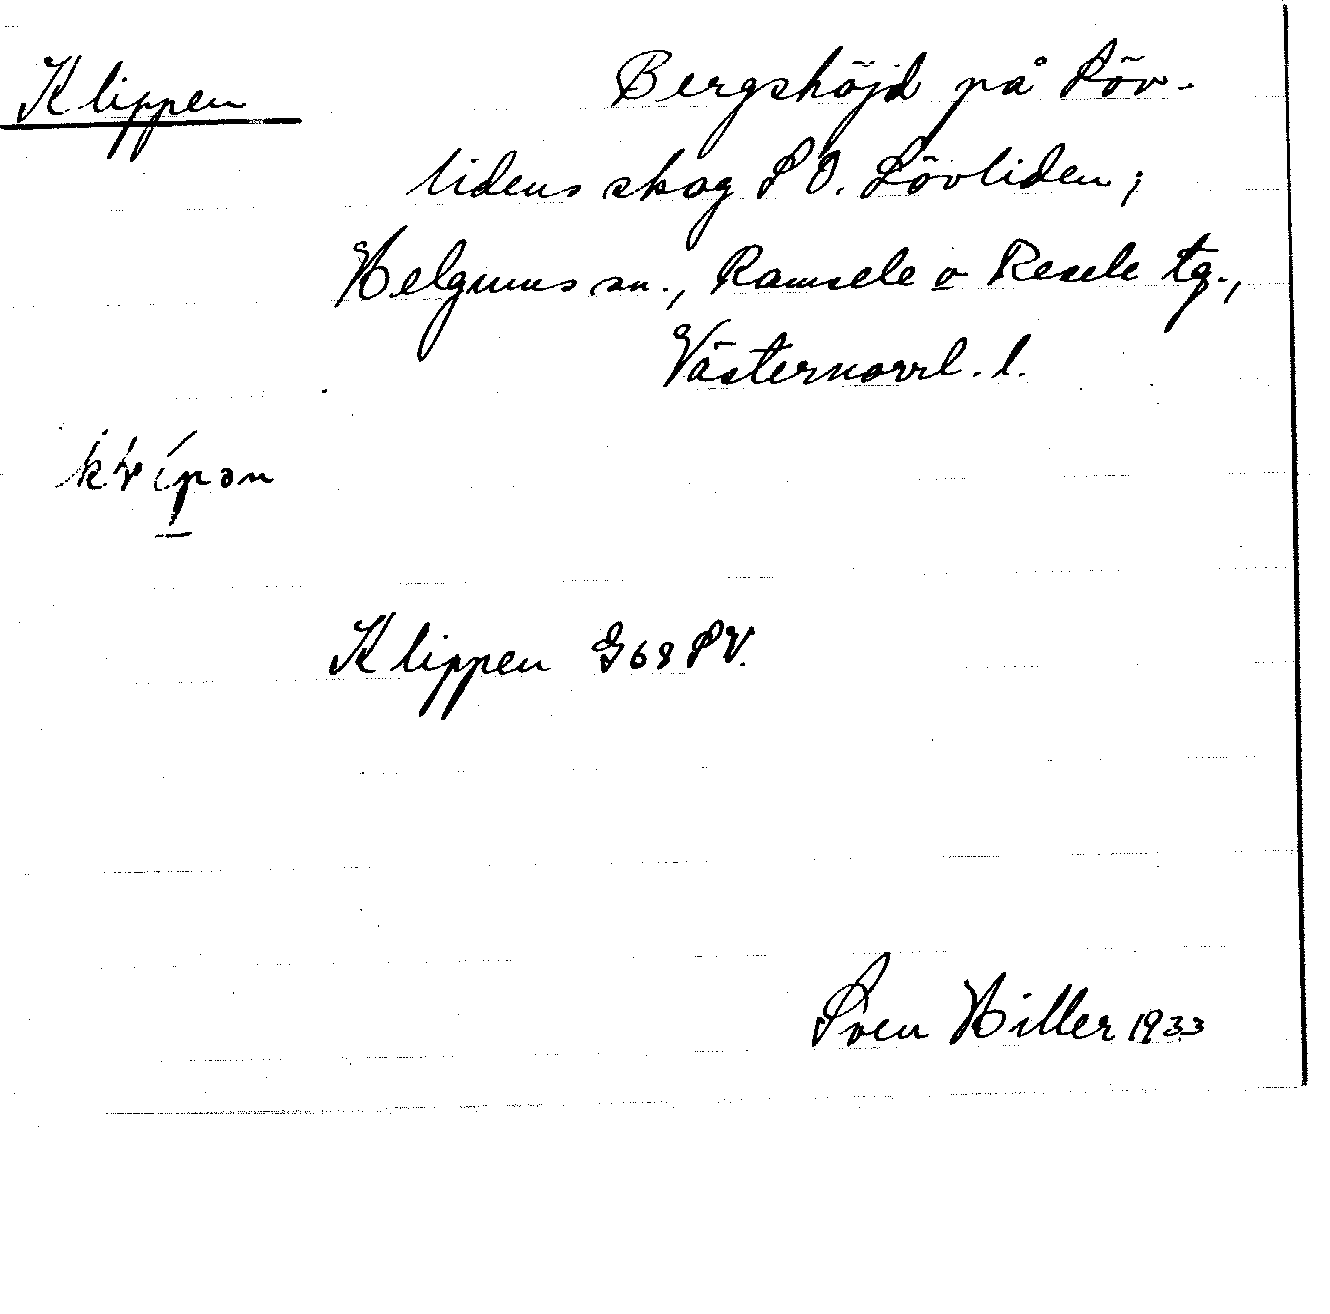 Klippen
Bergshöjd på Löv-
lidens skog S O. Lövliden;
Helgums sn., Ramsele o Resele tg.,
Västernorrl. l.
Klippen G68 SV.
Sven Hiller 1933